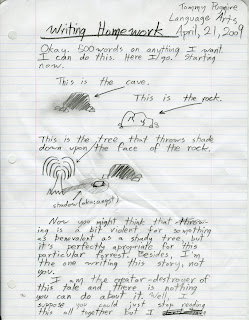 Tommy
Language Arts
Writing Homework April, 21, 2009
Okay. 500 words on anything I want.
I can do this. Here I go. Starting
now.
This is the cave.
This is the rock.
This is the tree that throws shade
down upon the face of the rock.
shadow (aka: angst)
Now you might think that throw-
ing is a bit violent for something
as benevolent as a shady tree, but
it's perfectly appropriate for this
particular forrest. Besides, I'm
the one writing this story, not
you.
I am the creator-destroyer of
this tale and there is nothing
you can do about it. Well, I
suppose you could just stop reading
this all together but I